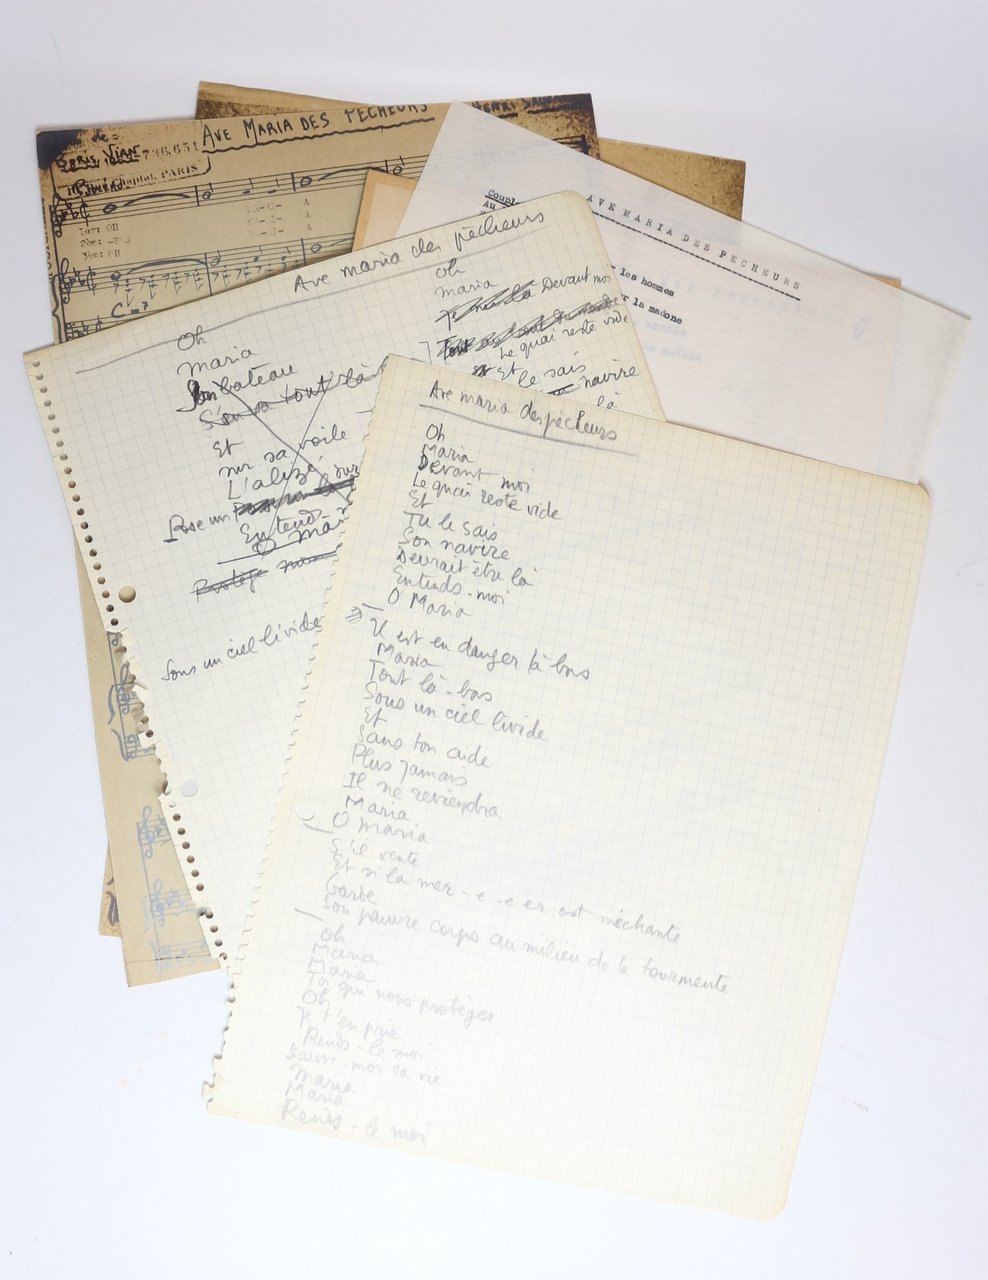 de =
BORIS VIAN
736.651
Chaptal, PARIS
AVE MARIA DES PÊCHEURS
HENRI
1er: OH
2èm:
3èm: OH
A
A
A
C m7
AVE MARIA DES PECHEURS
Couple
Au
les hommes
r la madone
Ave maria des pêcheurs
Oh
maria
Son bateau
S'en va tout là
Et
sur sa voile
L'alizé
Pose un
Entend-
O Mar
Protège
Sous un ciel livide
Oh
maria
Devant moi
Le quai reste vide
Et
le sais
navire
là
Ave maria des pêcheurs
Oh
Maria
Devant moi
Le quai reste vide
Et
Tu le sais
Son navire
Devrait être là
Entends-moi
O Maria
Il est en danger là bas
Maria
Tout là-bas
Sous un ciel livide
Et
Sans ton aide
Plus jamais
Il ne reviendra
Maria
O maria
S'il vente
Et si la mer-e-e er est méchante
Garde
Son pauvre corps au milieu de la tourmente
Oh
Maria
Maria
Toi qui nous protèges
Oh
Je t'en prie
Rends-le moi
Sauve-moi sa vie
Maria
Maria
Rends-le moi